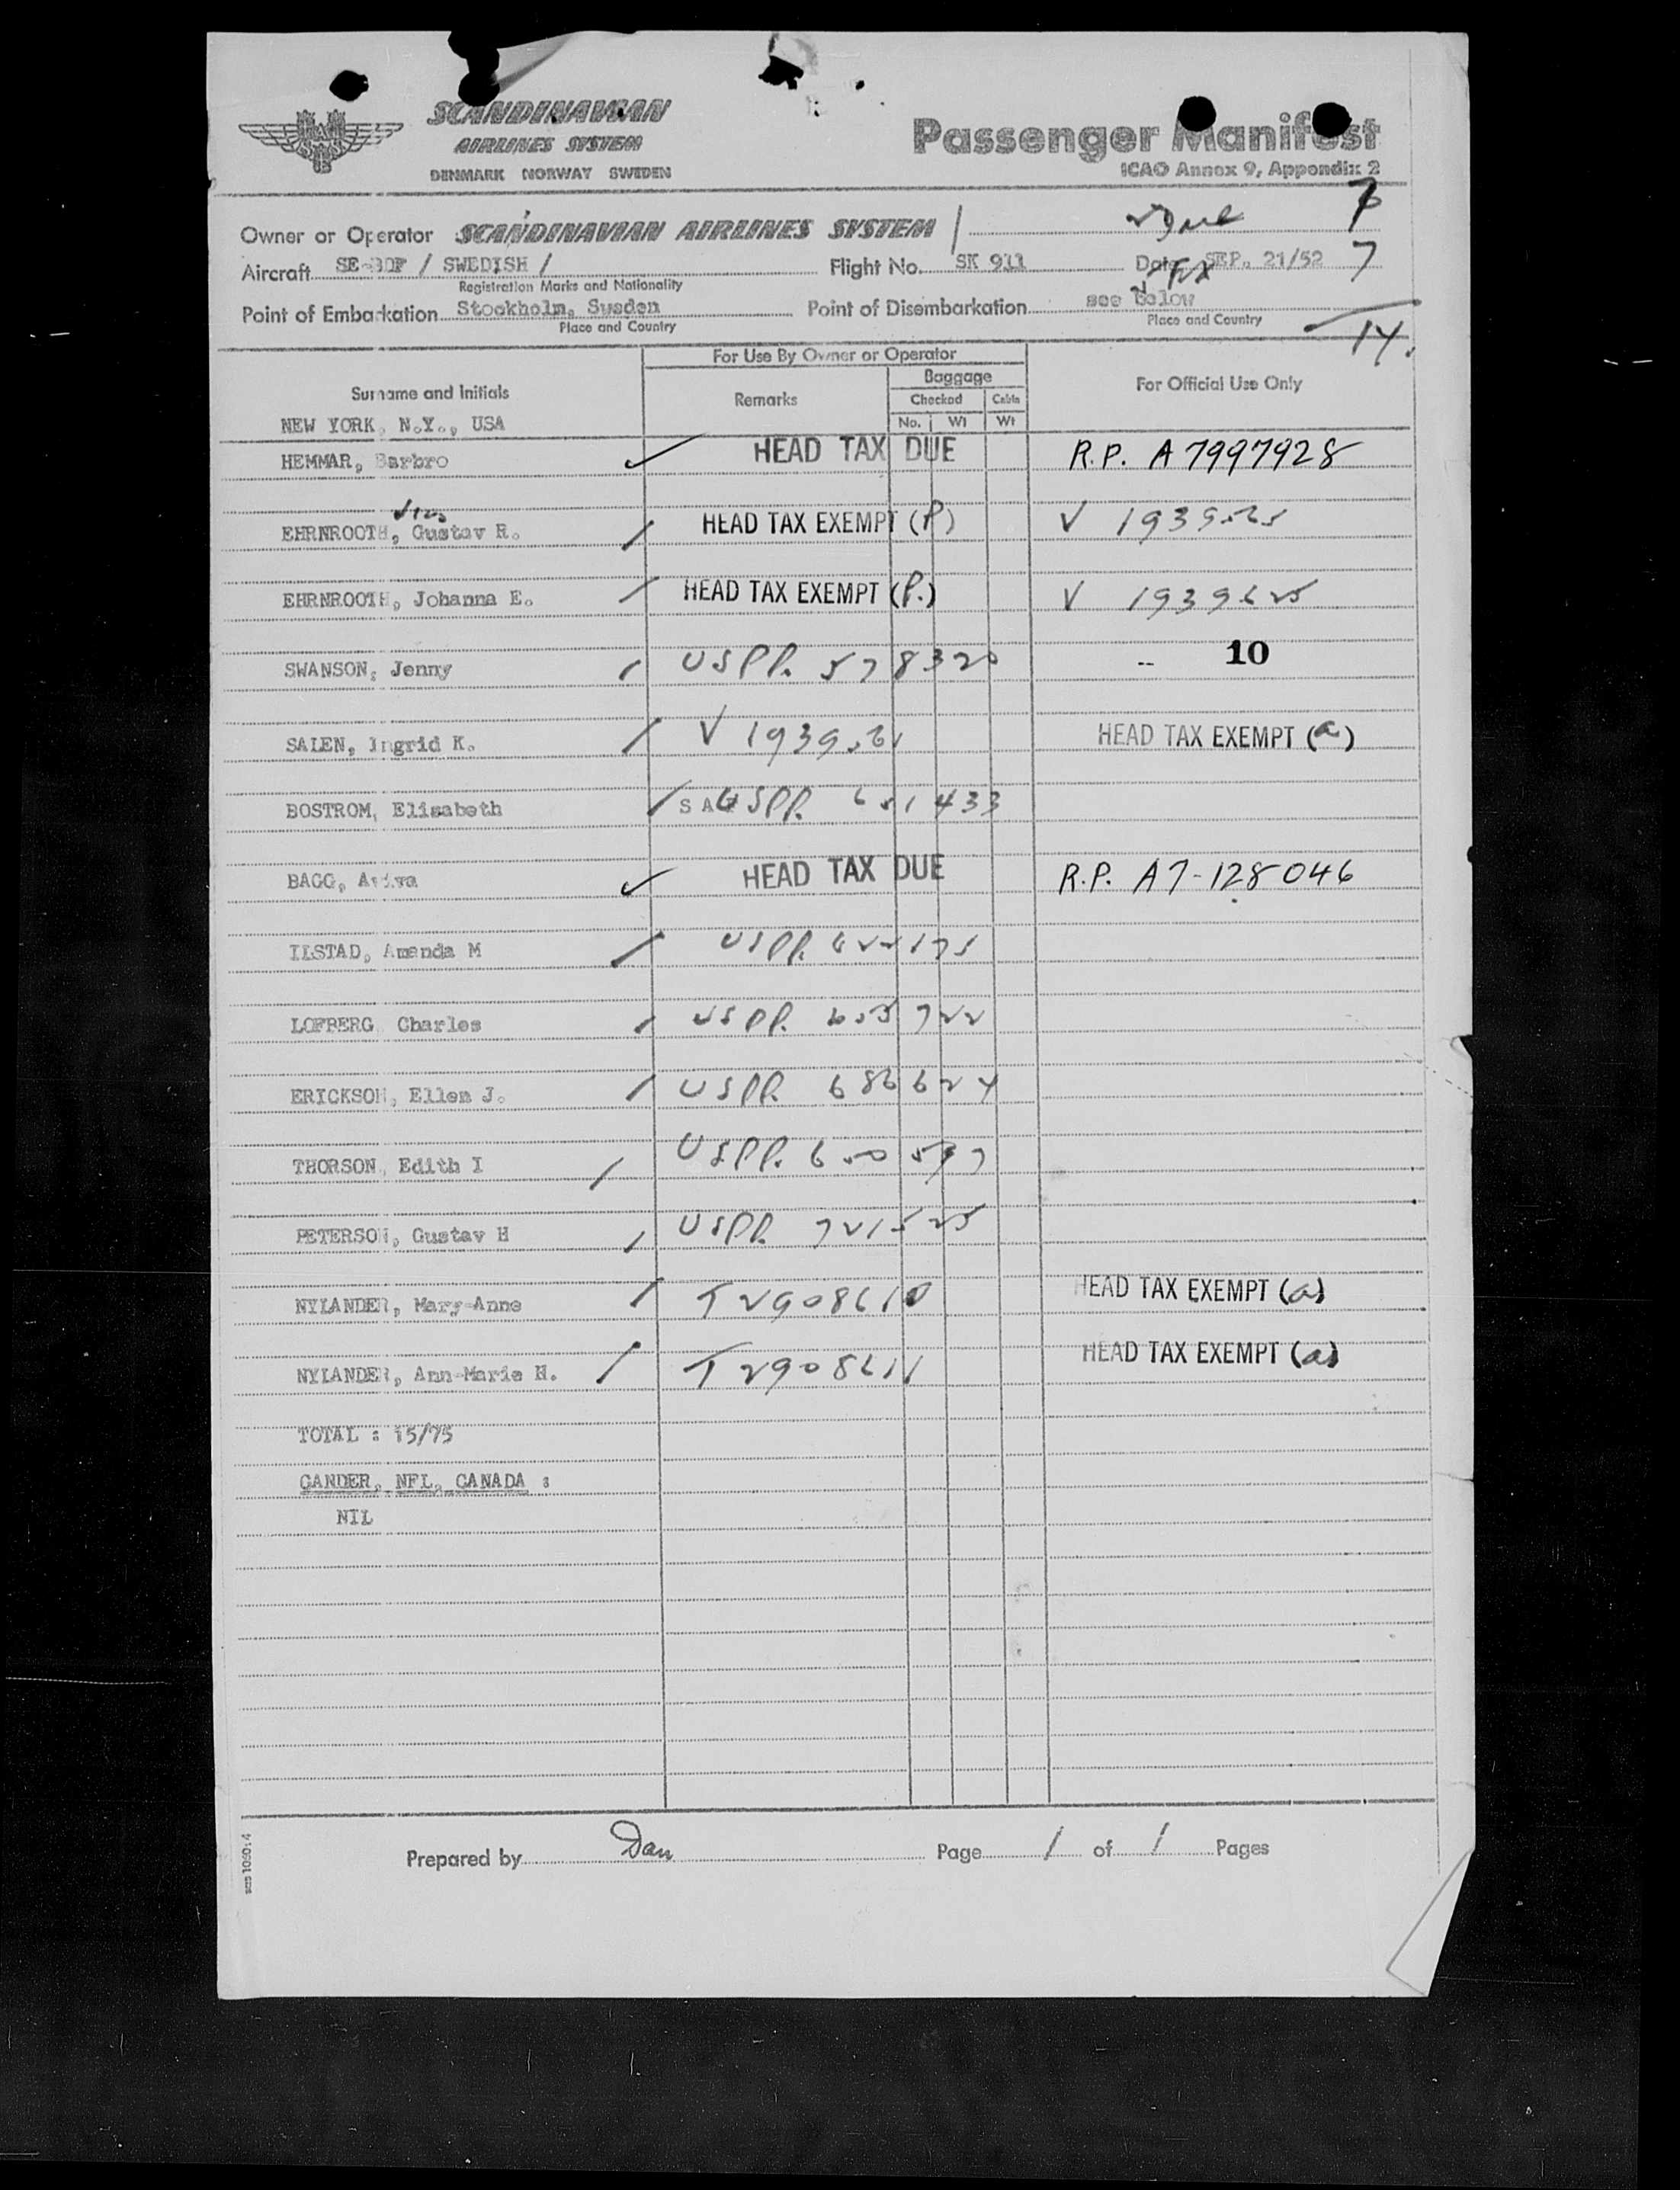 SCANDINAVIAN
AIRLINES SYSTEM
DENMARK NORWAY SWEDEN
Passenger Manifest
ICAO Annex 9, Appendix 2
Owner or Operator SCANDINAVIAN AIRLINES SYSTEM
7
Aircraft SE-BDF / SWEDISH / Flight No. SK 911 Date SEP. 21/52 7
Registration Marks and Nationality
Point of Embarkation Stockholm, Sweden Point of Disembarkation see below
Place and Country Place and Country
14.
For Use By Owner or Operator
Surname and Initials Remarks Baggage For Official Use Only
Checked Cabin
No. Wt Wt
NEW YORK, N.Y., USA
HEMMAR, Barbro HEAD TAX DUE R.P. A 7997928
EHRNROOTH, Gustav R. HEAD TAX EXEMPT (P) V
EHRNROOTH, Johanna E. HEAD TAX EXEMPT (P.) V 1939625
SWANSON, Jenny USPP. 578320 -- 10
SALEN, Ingrid K. V HEAD TAX EXEMPT (a)
BOSTROM, Elisabeth USPP.
BAGG, Aviva HEAD TAX DUE R.P. A7-128046
ILSTAD, Amanda M USPP.
LOFBERG Charles USPP.
ERICKSON, Ellen J. USPP. 686624
THORSON, Edith I USPP.
PETERSON, Gustav H USPP. 721525
NYLANDER, Mary-Anne T 2908610 HEAD TAX EXEMPT (a)
NYLANDER, Ann-Marie H. T 2908611 HEAD TAX EXEMPT (a)
TOTAL : 15/75
GANDER, NFL, CANADA :
NIL
Prepared by Dan Page 1 of 1 Pages